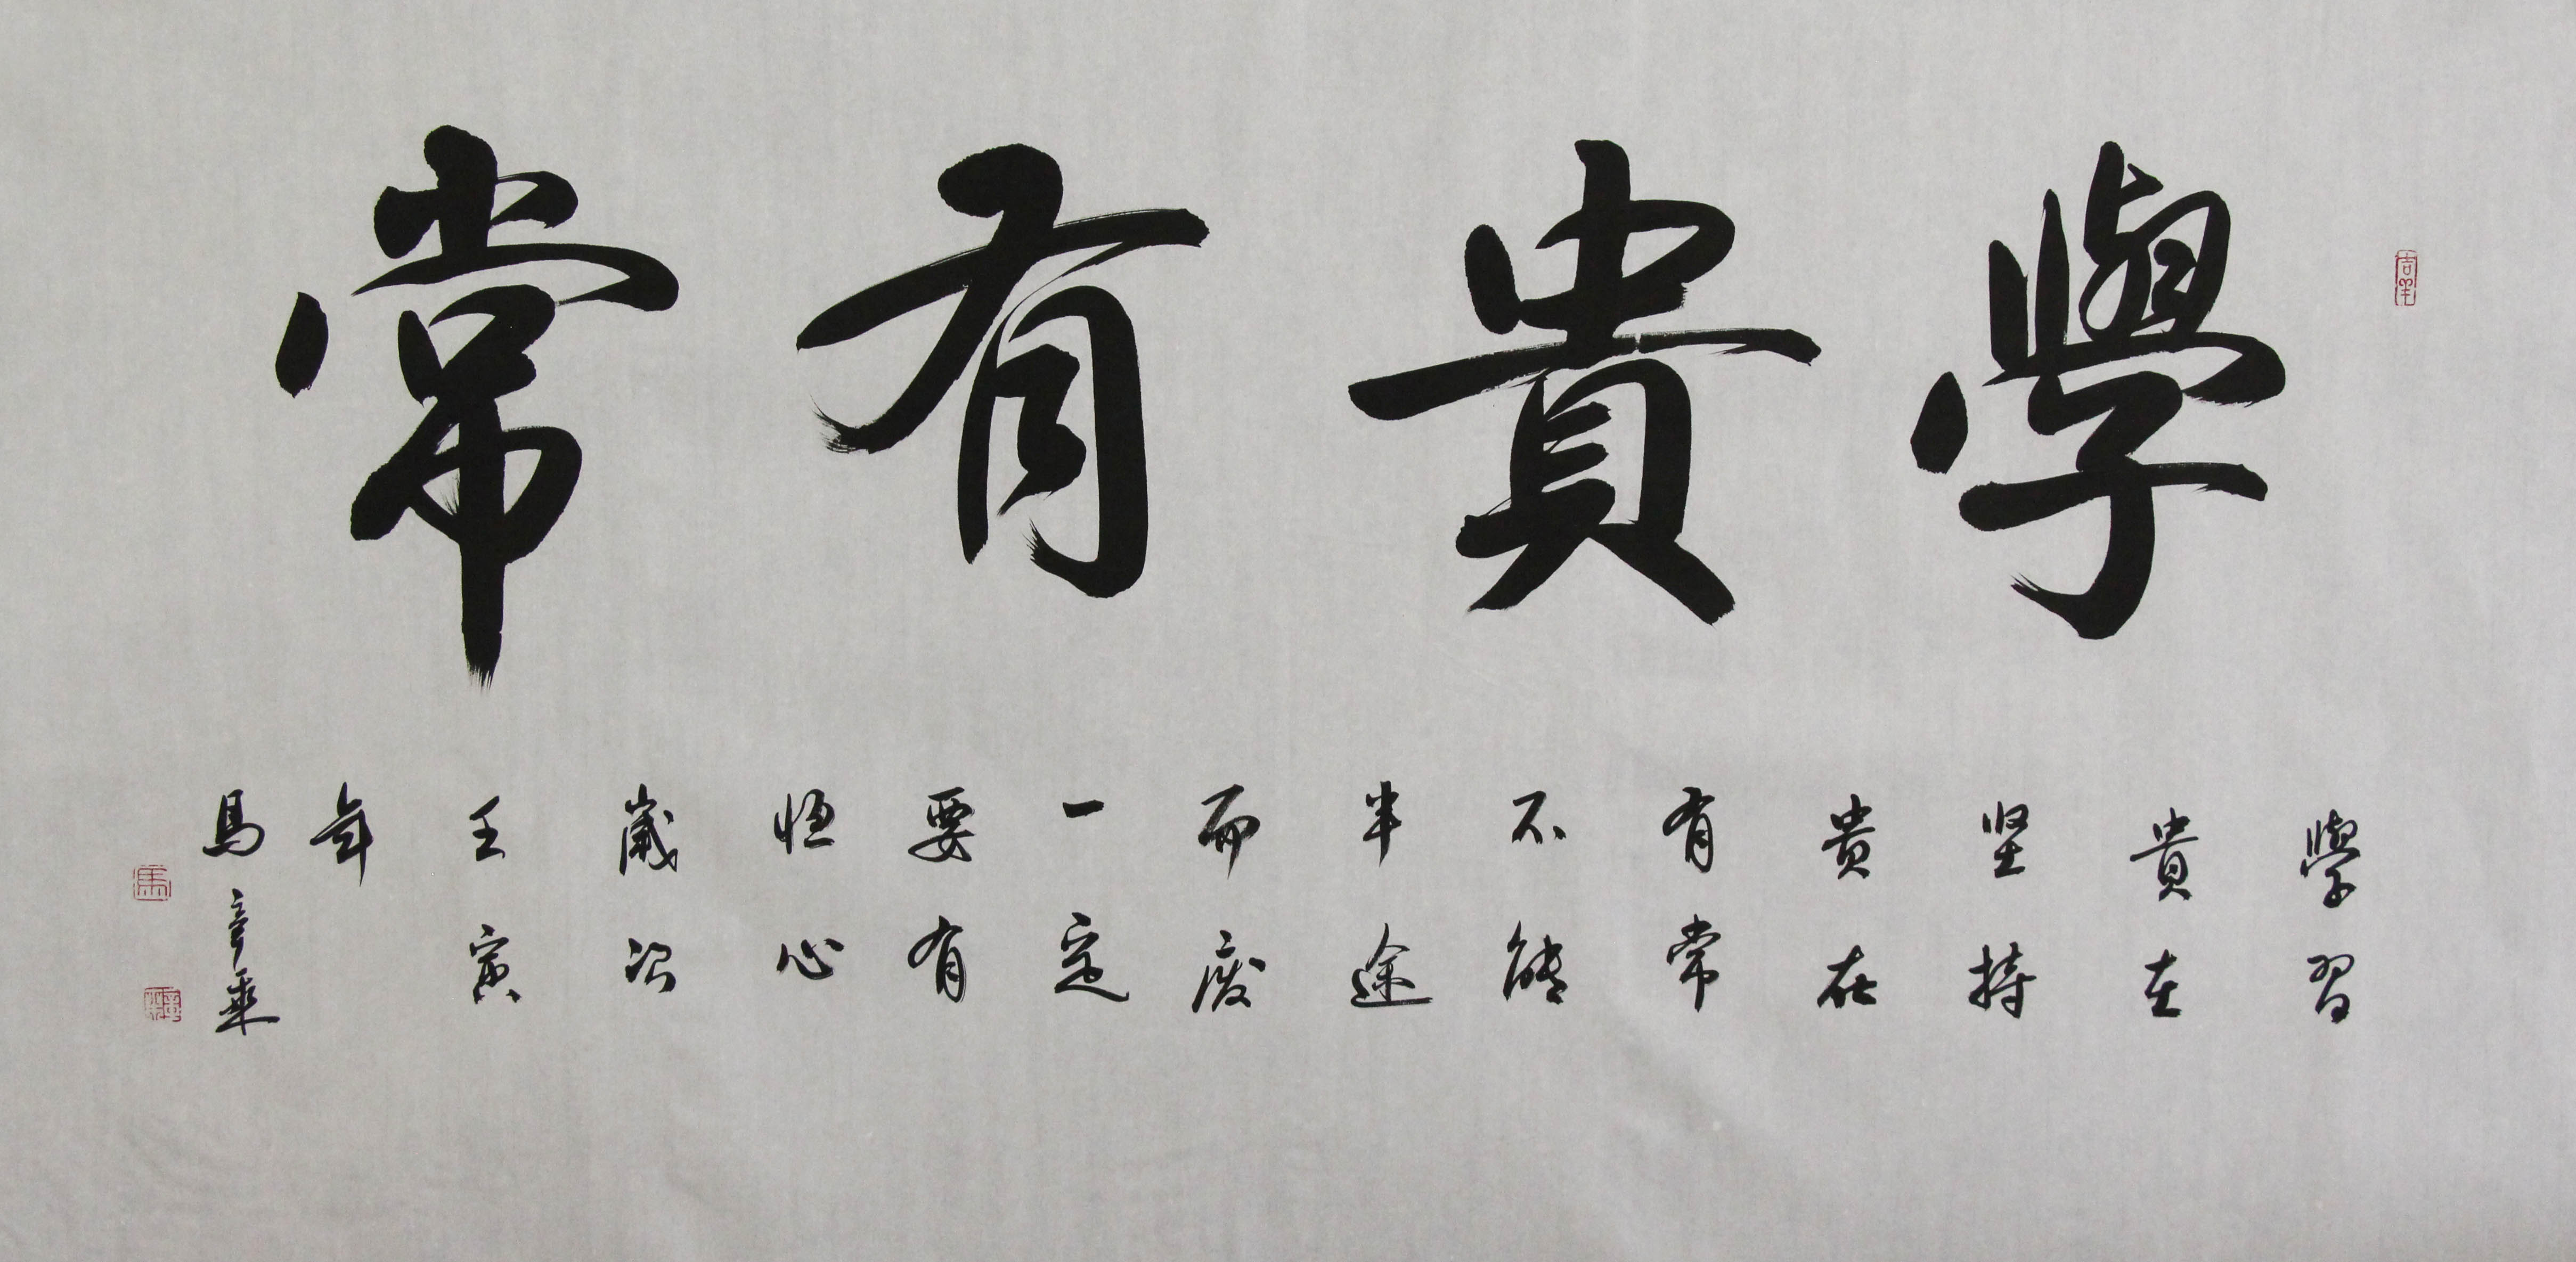 學貴有常
學習
貴在
坚持
贵在
有常
不能
半途
而废
一定
要有
恒心
歲次
壬寅
年
馬
吉羊
馬